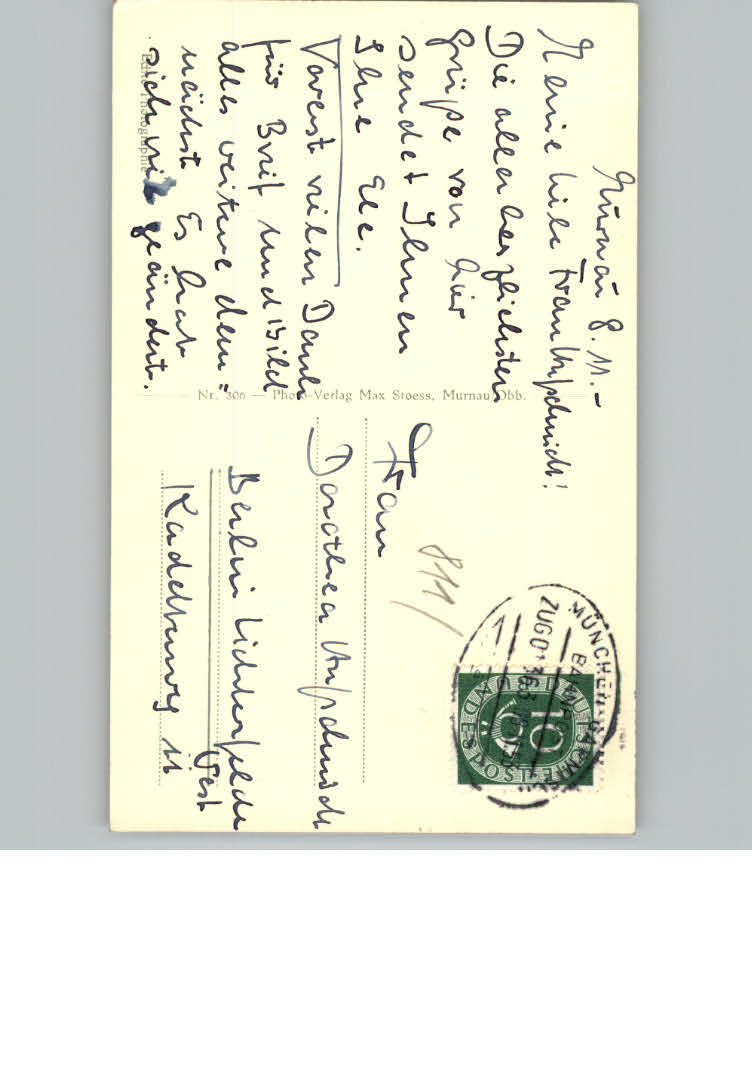 Murnau 8. 11.–
Meine liebe Frau
Die allerherzlichsten
Grüße von hier
sendet Ihnen
Ihre Ele.
Vorerst vielen Dank
für Brief und Bild
alles weitere dem=
nächst Es hat
sich nix geändert.
Echte Photographie
Nr. 306 — Photo-Verlag Max Stoess, Murnau Obb.
811/
Frau
Dorothea
Berlin Lichterfelde
West
Kadettenweg 11
MÜNCHEN
BAHNPOST
ZUG
DEUTSCHE
BUNDESPOST
10